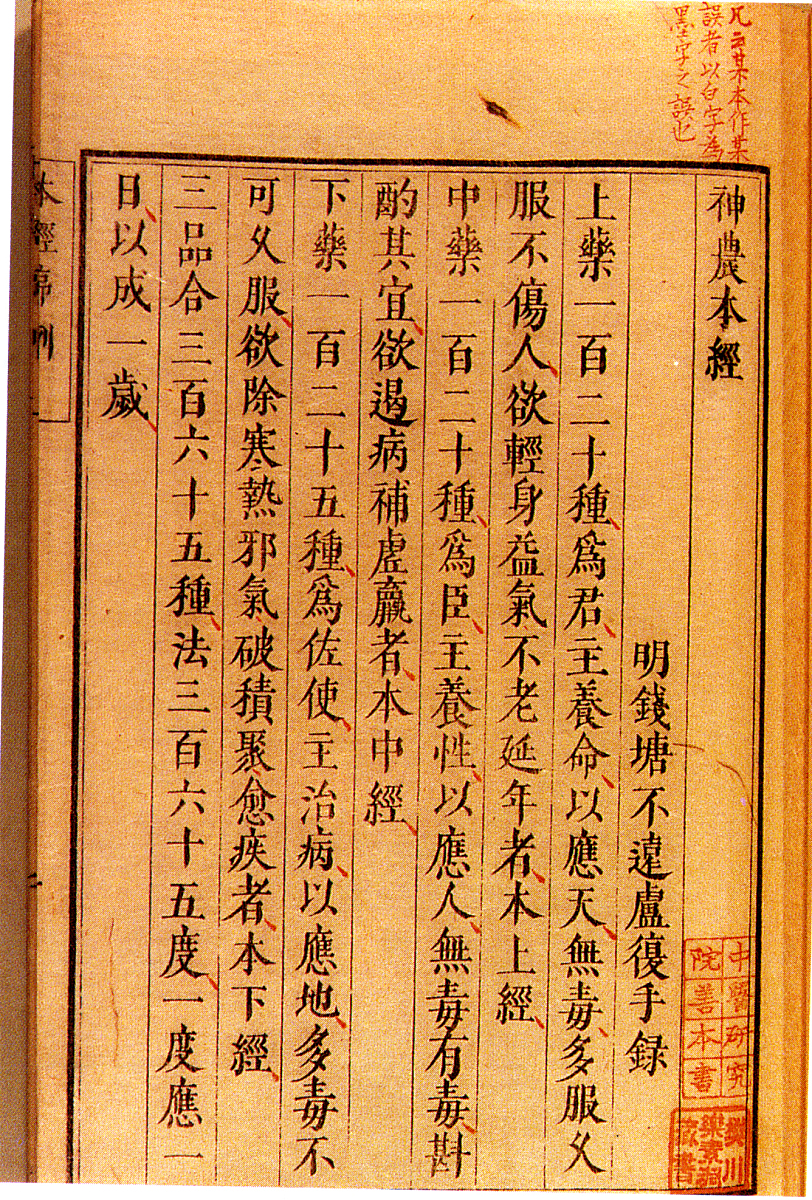 凡云某本作某
誤者以白字為
黑字之誤也
神農本經
明錢塘不遠盧復手録
上藥一百二十種爲君主養命以應天無毒多服久
服不傷人欲輕身益氣不老延年者本上經
中藥一百二十種爲臣主養性以應人無毒有毒斟
酌其宜欲遏病補虛羸者本中經
下藥一百二十五種爲佐使主治病以應地多毒不
可久服欲除寒熱邪氣破積聚愈疾者本下經
三品合三百六十五種法三百六十五度一度應一
日以成一歲
本經序例
中醫研究
院善本書